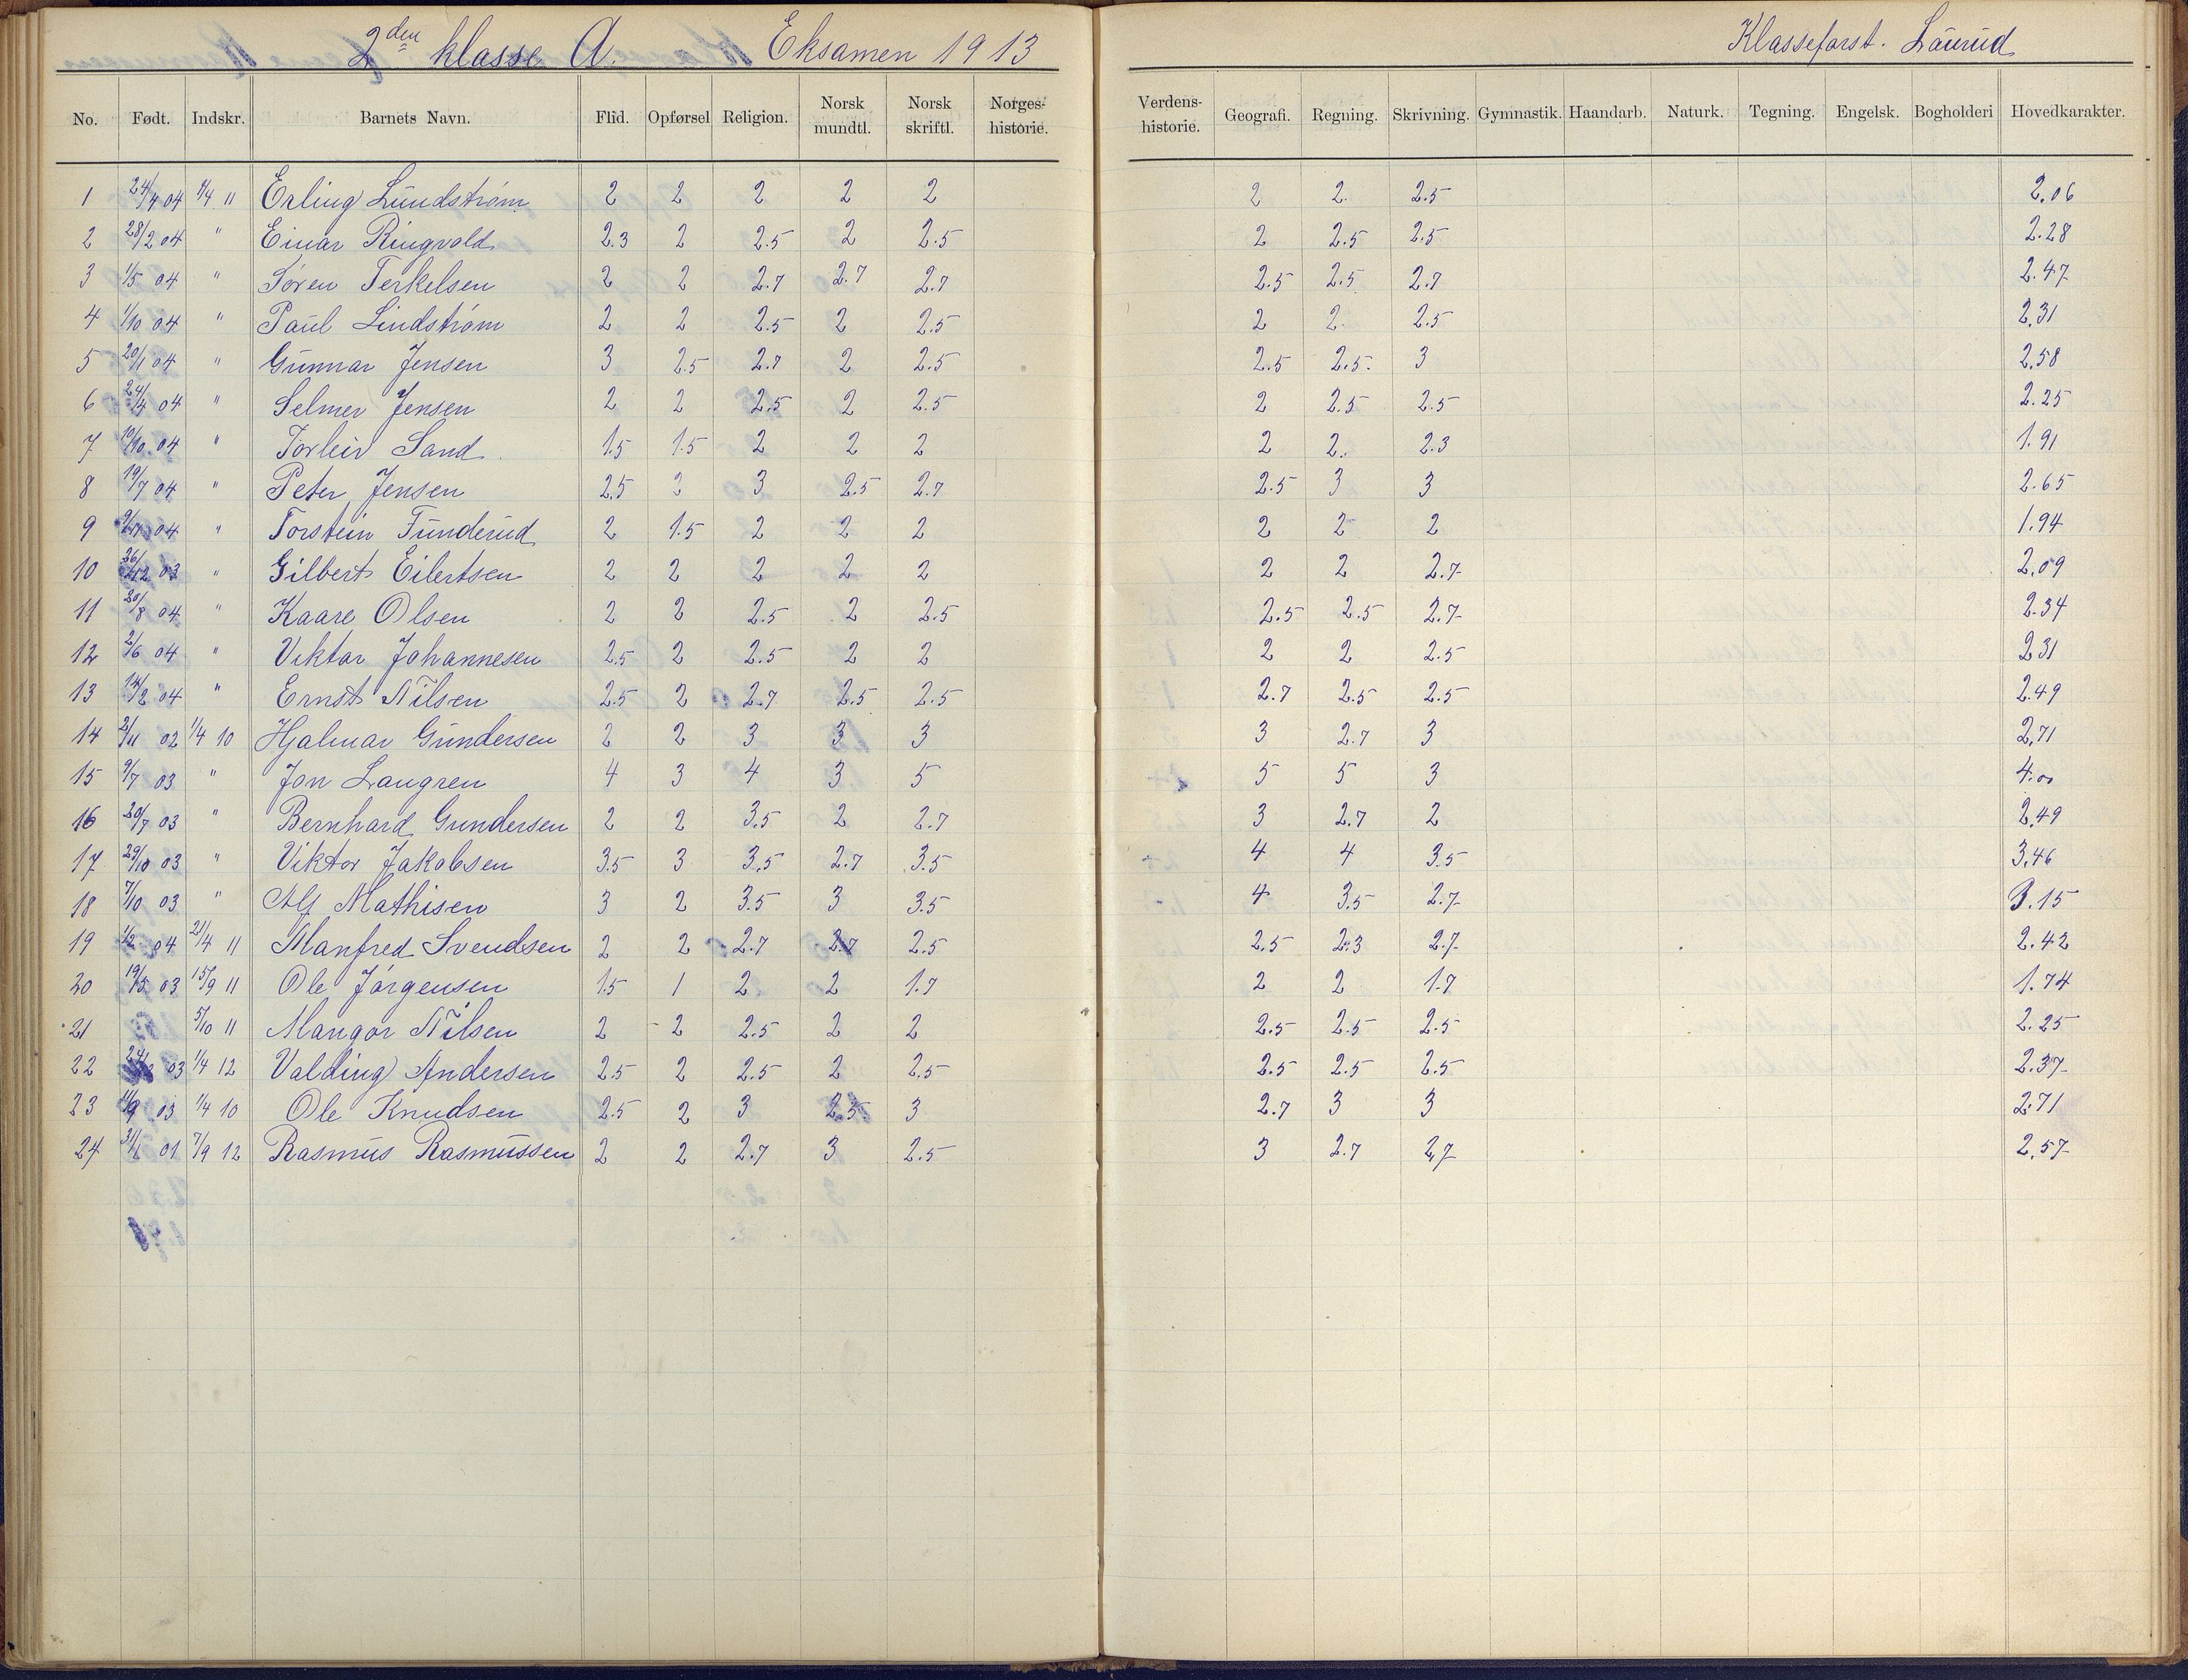 2den klasse A. Eksamen 1913 Klasseforst. Laurud
No. Født. Indskr. Barnets Navn. Flid. Opførsel Religion. Norsk mundtl. Norsk skriftl. Norges-historie. Verdens-historie. Geografi. Regning. Skrivning. Gymnastik. Haandarb. Naturk. Tegning. Engelsk. Bogholderi Hovedkarakter.
1 24/4 04 4/4 11 Erling Lundstrøm 2 2 2 2 2 2 2. 2.5 2.06
2 28/2 04 " Einar Ringvold 2.3 2 2.5 2 2.5 2 2.5 2.5 2.28
3 1/5 04 " Søren Terkelsen 2 2 2.7 2.7 2.7 2.5 2.5 2.7 2.47
4 1/10 04 " Paul Lindstrøm 2 2 2.5 2 2.5 2 2. 2.5 2.31
5 20/1 04 " Gunnar Jensen 3 2.5 2.7 2 2.5 2.5 2.5. 3 2.58
6 24/4 04 " Selmer Jensen 2 2 2.5 2 2.5 2 2.5 2.5 2.25
7 10/10 04 " Torleiv Sand 1.5 1.5 2 2 2 2 2. 2.3 1.91
8 19/7 04 " Peter Jensen 2.5 2 3 2.5 2.7 2.5 3 3 2.65
9 04 " Torstein Funderud 2 1.5 2 2 2 2 2 2 1.94
10 26/12 03 " Gilbert Eilertsen 2 2 2 2 2 2 2 2.7 2.09
11 20/8 04 " Kaare Olsen 2 2 2.5 2 2.5 2.5 2.5 2.7 2.34
12 2/6 04 " Viktor Johannesen 2.5 2 2.5 2 2 2 2 2.5 2.31
13 14/2 04 " Ernst Nilsen 2.5 2 2.7 2.5 2.5 2.7 2.5 2.5 2.49
14 2/11 02 1/4 10 Hjalmar Gundersen 2 2 3 3 3 3 2.7 3 2.71
15 9/7 03 " Jon Langren 4 3 4 3 5 5 5 3 4.00
16 20/7 03 " Bernhard Gundersen 2 2 3.5 2 2.7 3 2.7 2 2.49
17 29/10 03 " Viktor Jakobsen 3.5 3 3.5 2.7 3.5 4 4 3.5 3.46
18 7/10 03 " Alf Mathisen 3 2 3.5 3 3.5 4 3.5 2.7 3.15
19 1/2 04 21/4 11 Manfred Svendsen 2 2 2.7 2.7 2.5 2.5 2.3 2.7 2.42
20 19/5 03 15/9 11 Ole Jørgensen 1.5 1 2 2 1.7 2 2 1.7 1.74
21 5/10 11 Mangor Nilsen 2 2 2.5 2 2 2.5 2.5 2.5 2.25
22 03 1/4 12 Valding Andersen 2.5 2 2.5 2 2.5 2.5 2.5 2.5 2.37
23 11/9 03 1/4 10 Ole Knudsen 2.5 2 3 2.5 3 2.7 3 3 2.71
24 31/1 01 7/9 12 Rasmus Rasmussen 2 2 2.7 3 2.5 3 2.7 2.7 2.57